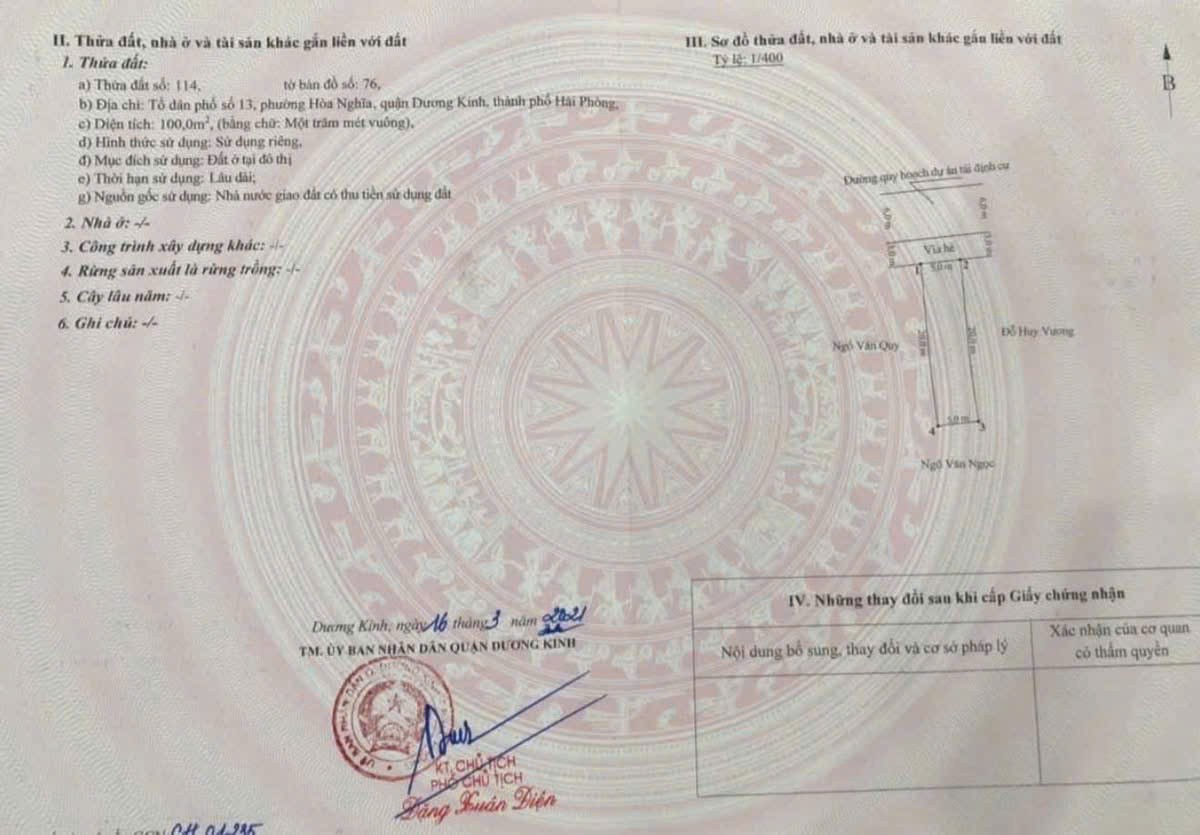 II. Thửa đất, nhà ở và tài sản khác gắn liền với đất
1. Thửa đất:
a) Thửa đất số: 114, tờ bản đồ số: 76,
b) Địa chỉ: Tổ dân phố số 13, phường Hòa Nghĩa, quận Dương Kinh, thành phố Hải Phòng,
c) Diện tích: 100,0m², (bằng chữ: Một trăm mét vuông),
d) Hình thức sử dụng: Sử dụng riêng,
đ) Mục đích sử dụng: Đất ở tại đô thị
e) Thời hạn sử dụng: Lâu dài;
g) Nguồn gốc sử dụng: Nhà nước giao đất có thu tiền sử dụng đất
2. Nhà ở: -/-
3. Công trình xây dựng khác: -/-
4. Rừng sản xuất là rừng trồng: -/-
5. Cây lâu năm: -/-
6. Ghi chú: -/-
III. Sơ đồ thửa đất, nhà ở và tài sản khác gắn liền với đất
Tỷ lệ: 1/400
B
Đường quy hoạch dự án tái định cư
6,0 m
6,0 m
Vỉa hè
3,0 m
3,0 m
1
5,0 m
2
20,0 m
20,0 m
Ngô Văn Quy
Đỗ Huy Vương
5,0 m
4
3
Ngô Văn Ngọc
Dương Kinh, ngày 16 tháng 3 năm 2021
TM. ỦY BAN NHÂN DÂN QUẬN DƯƠNG KINH
KT. CHỦ TỊCH
PHÓ CHỦ TỊCH
Đặng Xuân Diện
IV. Những thay đổi sau khi cấp Giấy chứng nhận
Nội dung bổ sung, thay đổi và cơ sở pháp lý
Xác nhận của cơ quan
có thẩm quyền